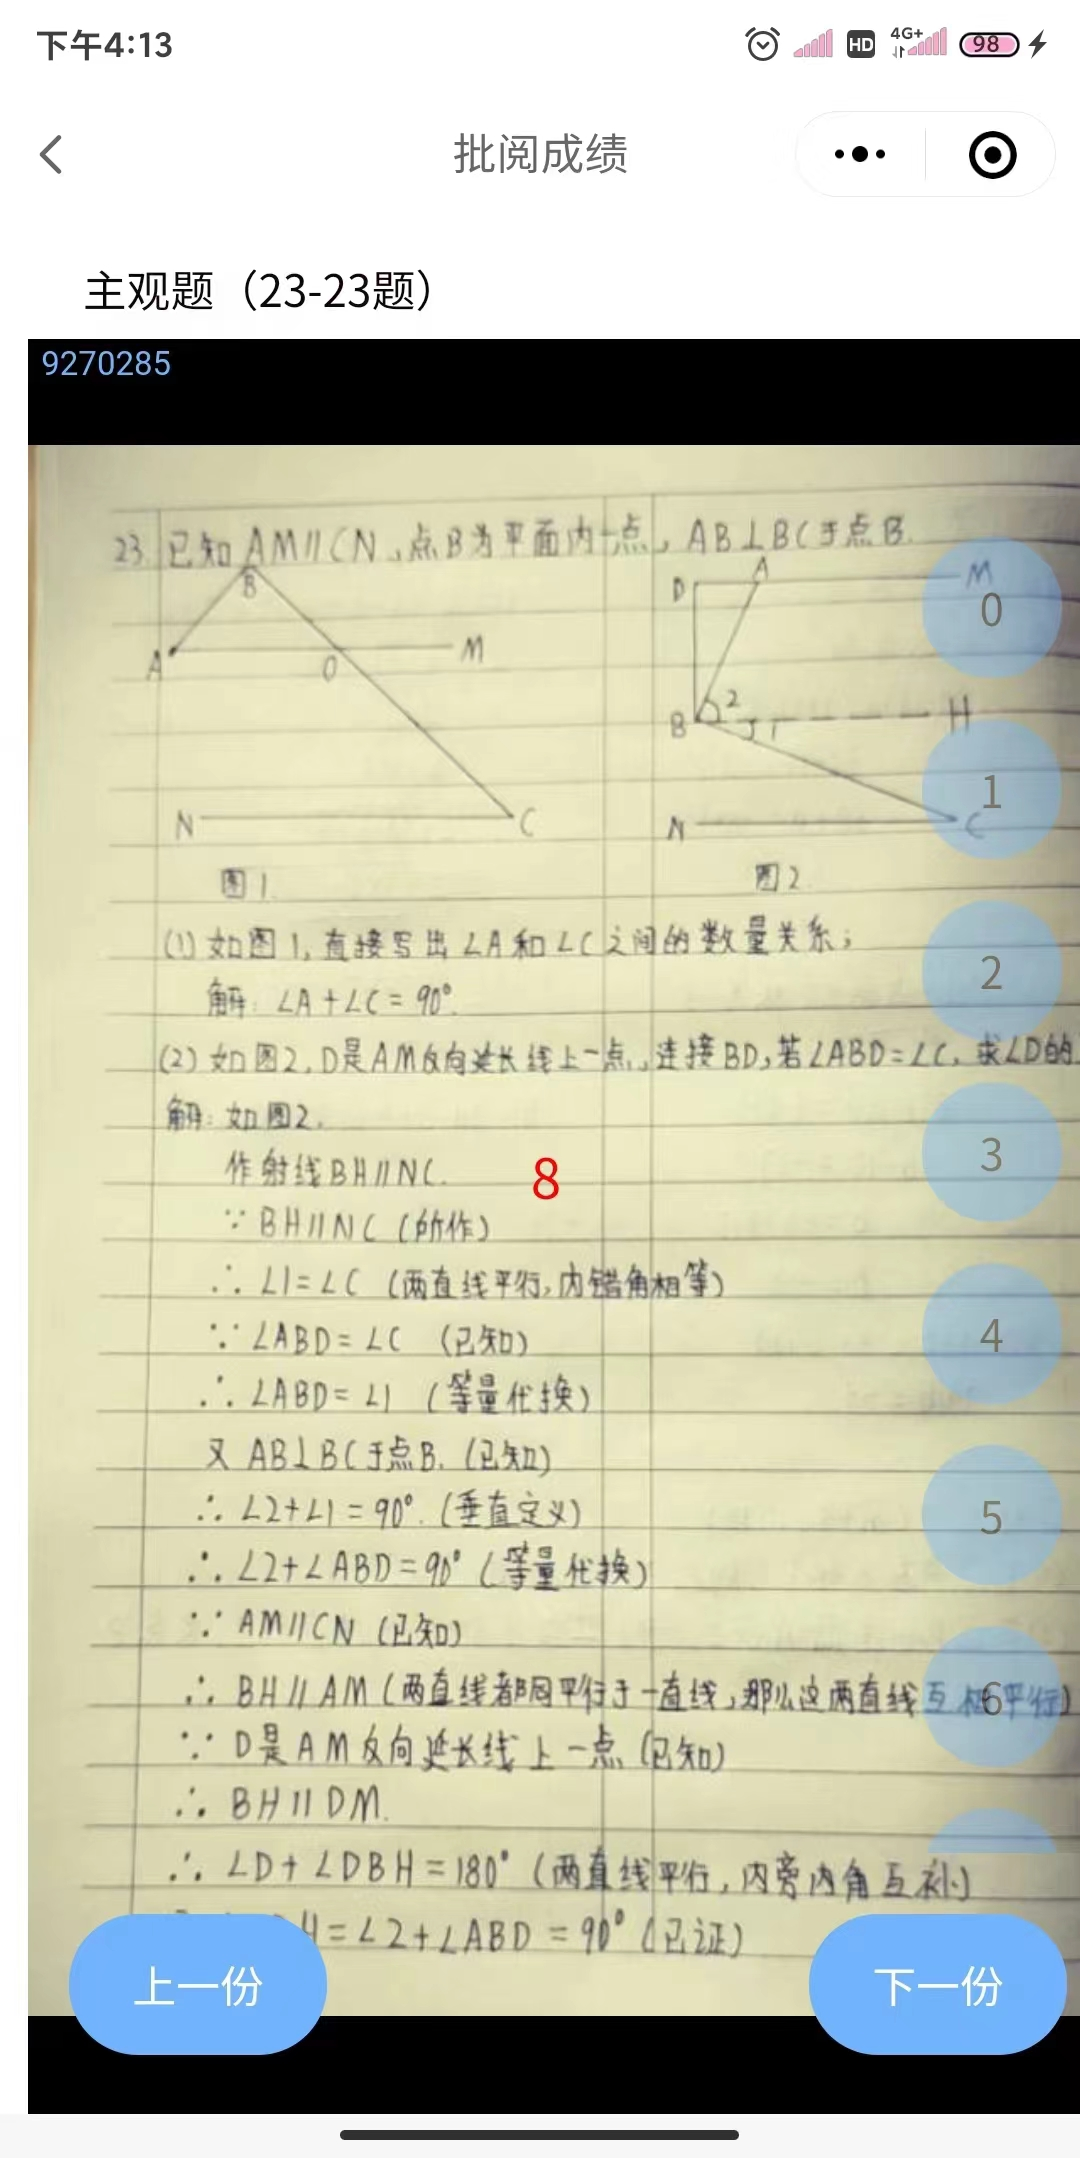 下午4:13
HD 4G+ 98
批阅成绩
主观题（23-23题）
9270285
23. 已知AM∥CN,点B为平面内一点,AB⊥BC于点B.
B
A
O
M
N
C
图1.
D
A
M
B
2
1
H
N
C
图2.
(1) 如图1,直接写出∠A和∠C之间的数量关系;
解:∠A+∠C=90°.
(2) 如图2,D是AM反向延长线上一点,连接BD,若∠ABD=∠C,求∠D的
解:如图2.
作射线BH∥NC.
∵BH∥NC(所作)
∴∠1=∠C (两直线平行,内错角相等)
∵∠ABD=∠C (已知)
∴∠ABD=∠1 (等量代换)
又AB⊥BC于点B.(已知)
∴∠2+∠1=90°.(垂直定义)
∴∠2+∠ABD=90°(等量代换)
∵AM∥CN (已知)
∴BH∥AM(两直线都同平行于一直线,那么这两直线互相平行)
∵D是AM反向延长线上一点(已知)
∴BH∥DM.
∴∠D+∠DBH=180°(两直线平行,内旁内角互补)
H=∠2+∠ABD=90°(已证)
8
0
1
2
3
4
5
6
上一份
下一份